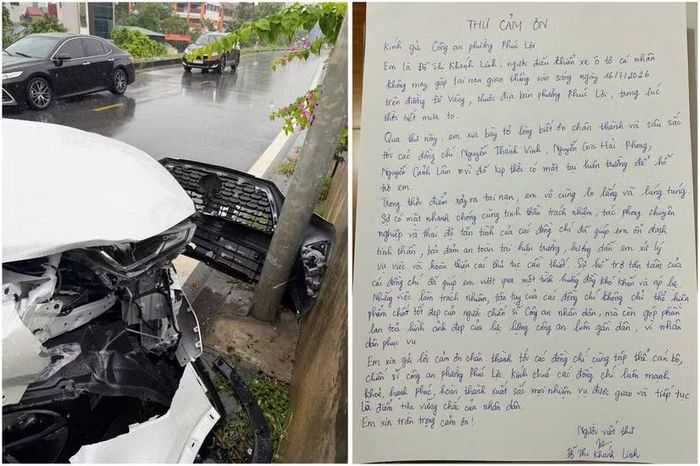 THƯ CẢM ƠN
Kính gửi: Công an phường Phúc Lợi
Em là Đỗ Thị Khánh Linh, người điều khiển xe ô tô cá nhân
không may gặp tai nạn giao thông vào sáng ngày 16/7/2026
trên đường Đê Vàng, thuộc địa bàn phường Phúc Lợi, trong lúc
thời tiết mưa to.
Qua thư này, em xin bày tỏ lòng biết ơn chân thành và sâu sắc
tới các đồng chí: Nguyễn Thành Vinh, Nguyễn Gia Hải Phong,
Nguyễn Cảnh Lân vì đã kịp thời có mặt tại hiện trường để hỗ
trợ em.
Trong thời điểm xảy ra tai nạn, em vô cùng lo lắng và lúng túng.
Sự có mặt nhanh chóng cùng tinh thần trách nhiệm, tác phong chuyên
nghiệp và thái độ tận tình của các đồng chí đã giúp em ổn định
tinh thần, bảo đảm an toàn tại hiện trường, hướng dẫn em xử lý
vụ việc và hoàn thiện các thủ tục cần thiết. Sự hỗ trợ tận tâm của
các đồng chí đã giúp em vượt qua một tình huống đầy khó khăn và áp lực.
Những việc làm trách nhiệm, tận tụy của các đồng chí không chỉ thể hiện
phẩm chất tốt đẹp của người chiến sĩ Công an nhân dân, mà còn góp phần
lan toả hình ảnh đẹp của lực lượng công an luôn gần dân, vì nhân
dân phục vụ.
Em xin gửi lời cảm ơn chân thành tới các đồng chí cùng tập thể cán bộ,
chiến sĩ công an phường Phúc Lợi, Kính chúc các đồng chí luôn mạnh
khoẻ, hạnh phúc, hoàn thành xuất sắc mọi nhiệm vụ được giao và tiếp tục
là điểm tựa vững chắc của nhân dân.
Em xin trân trọng cảm ơn!
Người viết thư
Đỗ Thị Khánh Linh